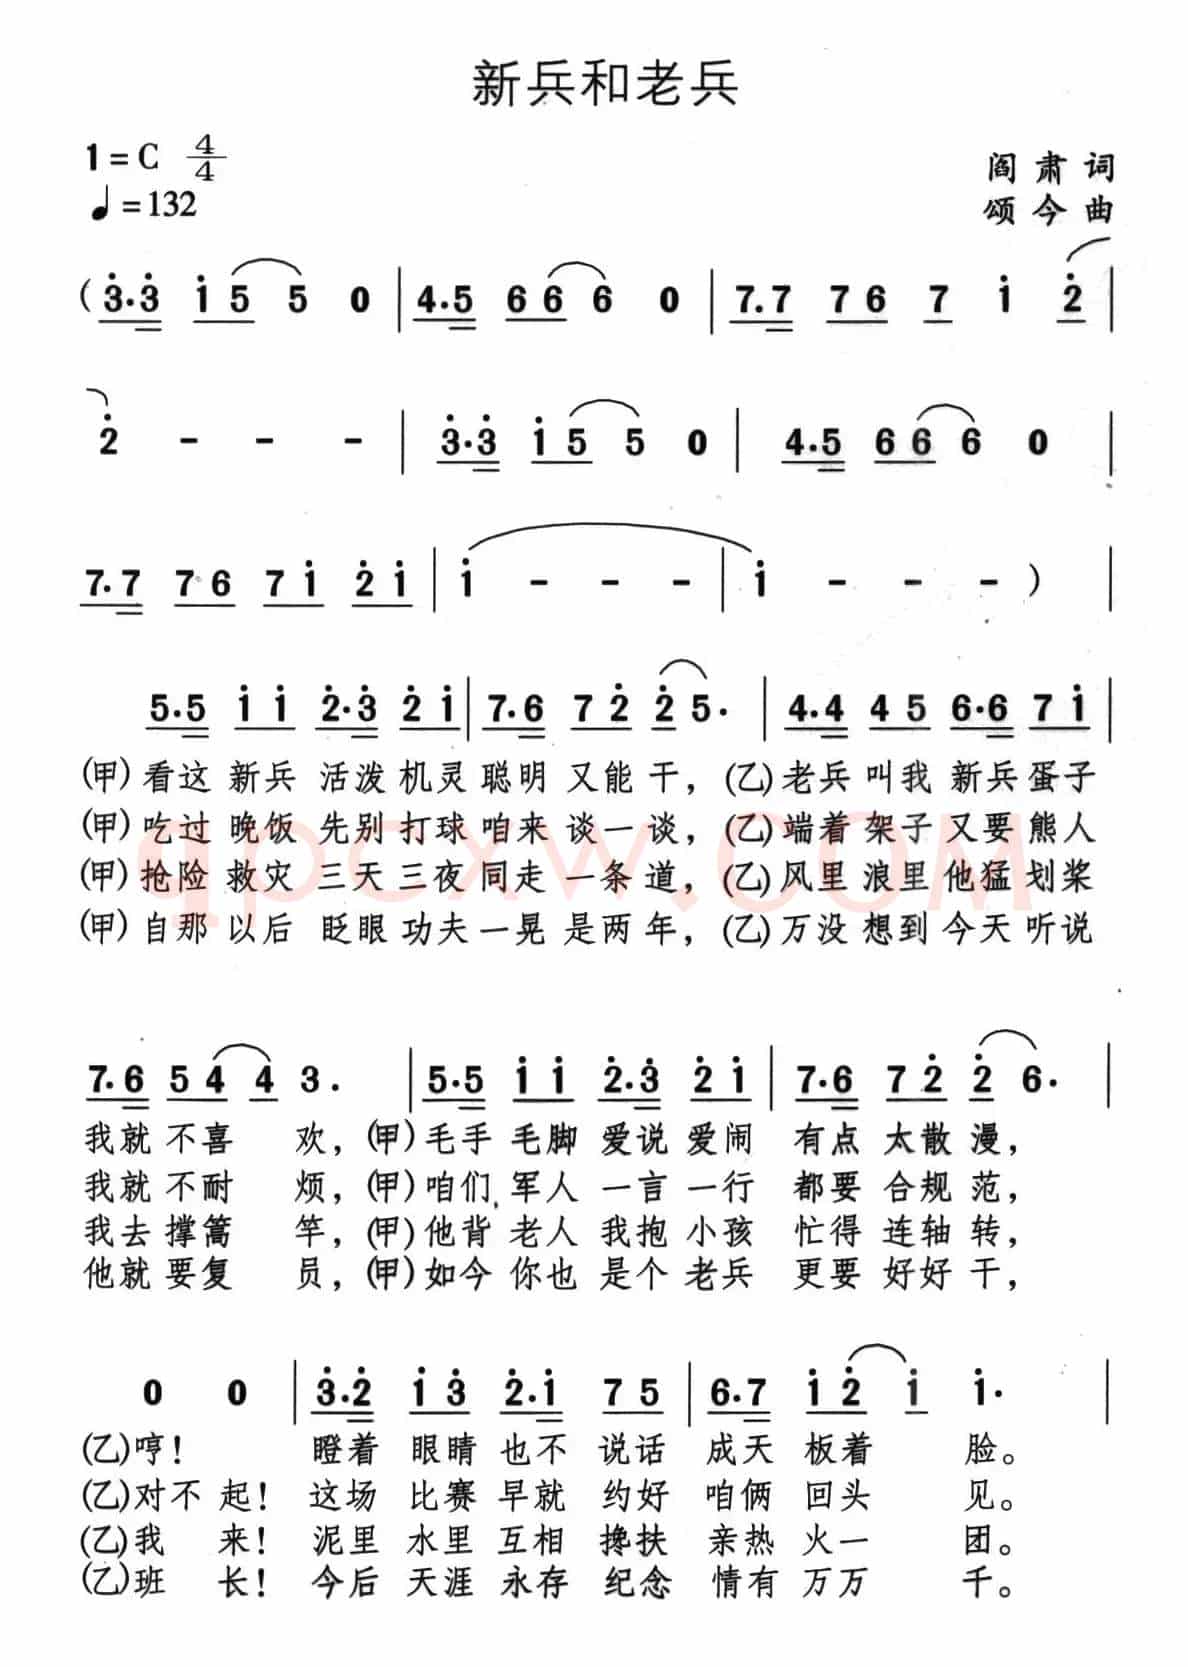 新兵和老兵
1=C 4/4
♩=132
阎肃词
颂今曲
(3̇.3̇ 1̇5 5 0 | 4.5 66 6 0 | 7.7 76 7 1̇ 2̇ |
2̇ - - - | 3̇.3̇ 1̇5 5 0 | 4.5 66 6 0 |
7.7 76 71̇ 2̇1̇ | 1̇ - - - | 1̇ - - - ) |
5.5 1̇1̇ 2̇.3̇ 2̇1̇ | 7.6 72̇ 2̇5. | 4.4 45 6.6 71̇ |
(甲)看这新兵活泼机灵聪明又能干,(乙)老兵叫我新兵蛋子
(甲)吃过晚饭先别打球咱来谈一谈,(乙)端着架子又要熊人
(甲)抢险救灾三天三夜同走一条道,(乙)风里浪里他猛划桨
(甲)自那以后眨眼功夫一晃是两年,(乙)万没想到今天听说
7.6 54 4 3. | 5.5 1̇1̇ 2̇.3̇ 2̇1̇ | 7.6 72̇ 2̇6. |
我就不喜欢,(甲)毛手毛脚爱说爱闹有点太散漫,
我就不耐烦,(甲)咱们军人一言一行都要合规范,
我去撑篙竿,(甲)他背老人我抱小孩忙得连轴转,
他就要复员,(甲)如今你也是个老兵更要好好干,
0 0 | 3̇.2̇ 1̇3̇ 2̇.1̇ 75 | 6.7 1̇2̇ 1̇ 1̇. |
(乙)哼! 瞪着眼睛也不说话成天板着脸。
(乙)对不起! 这场比赛早就约好咱俩回头见。
(乙)我来! 泥里水里互相搀扶亲热火一团。
(乙)班长! 今后天涯永存纪念情有万万千。
qpcxw.com